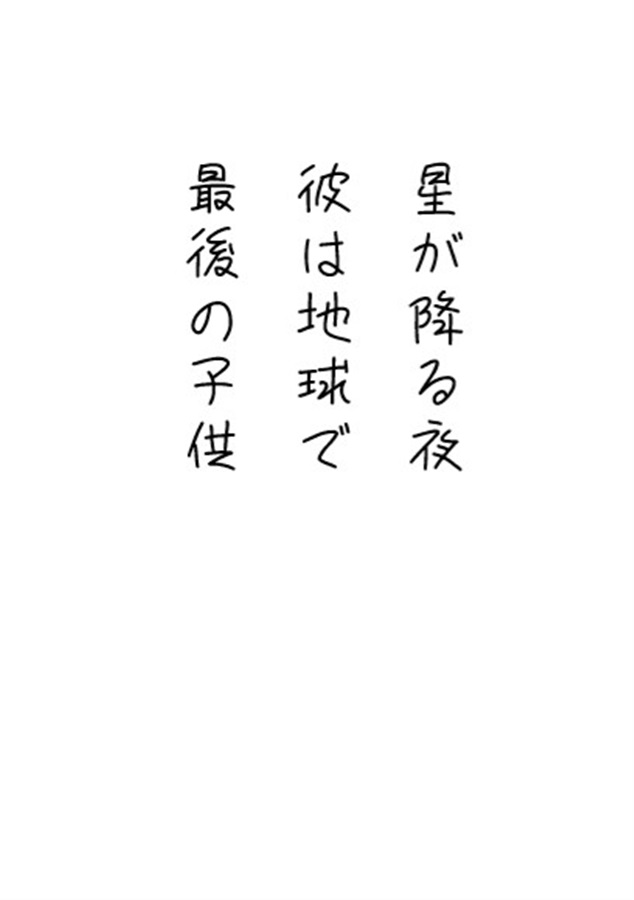 星が降る夜
彼は地球で
最後の子供